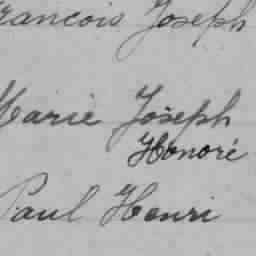 François Joseph
Marie Joseph
Honoré
Paul Henri